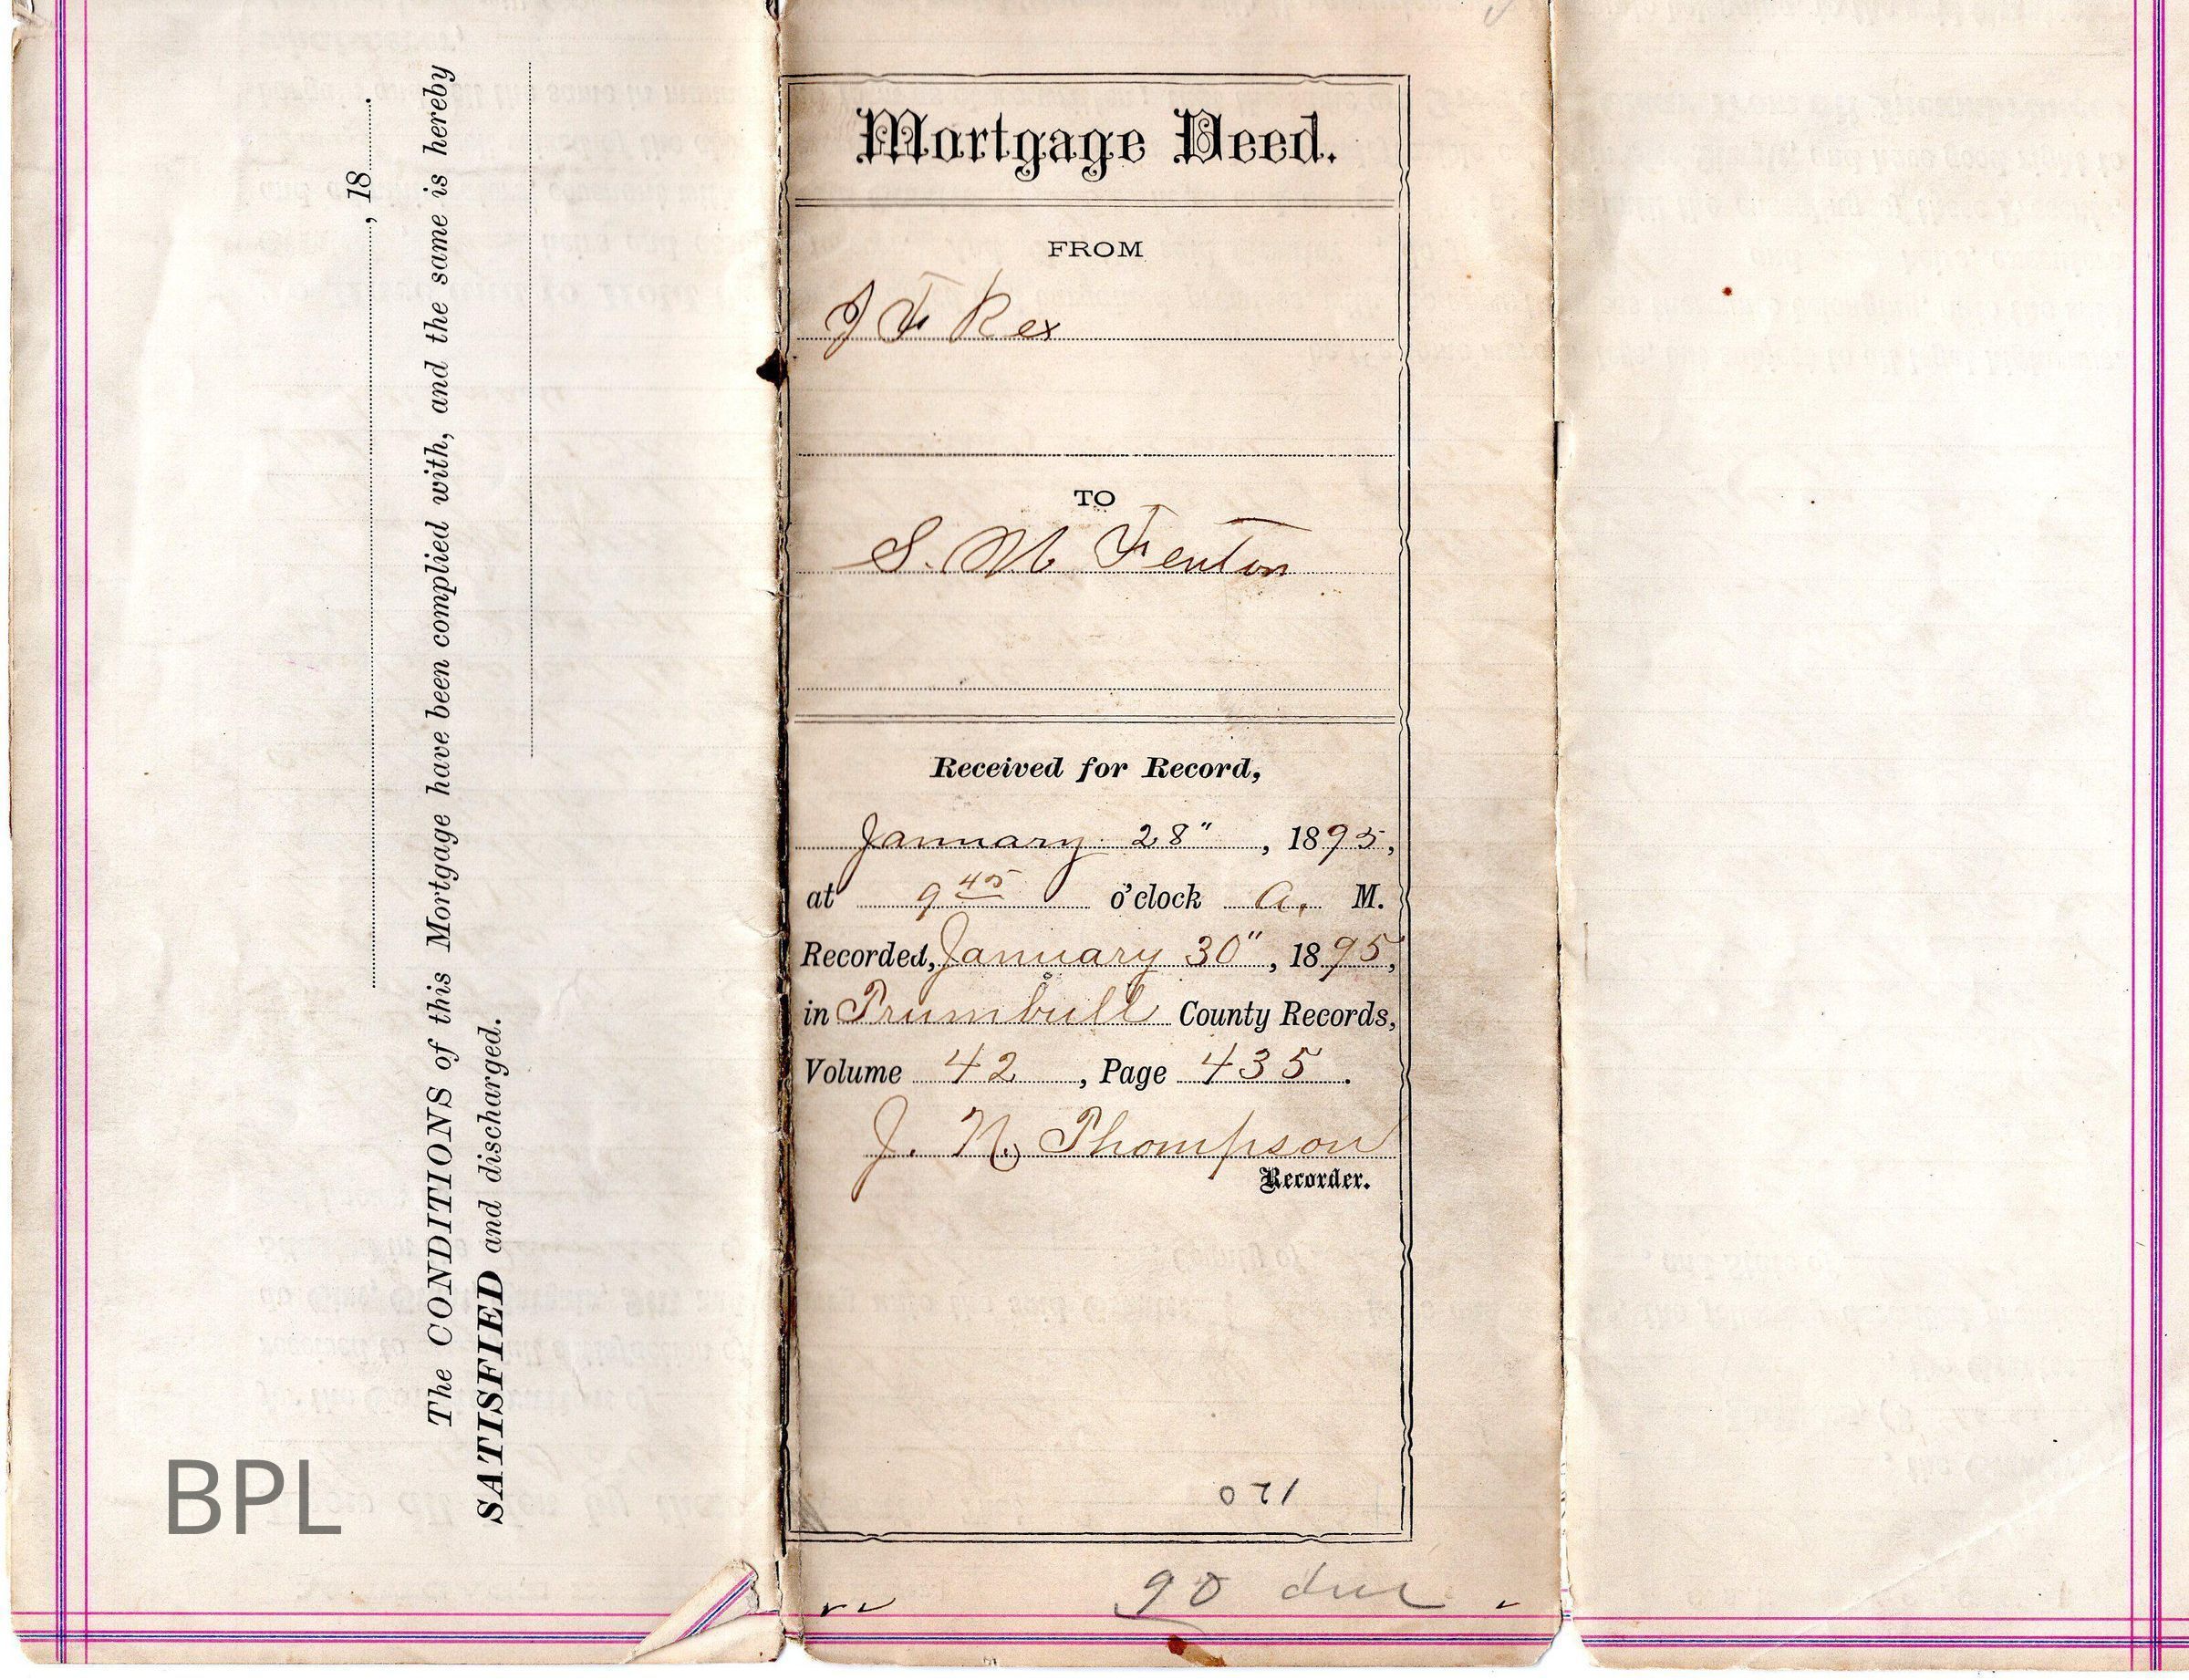 , 18
The CONDITIONS of this Mortgage have been complied with, and the same is hereby
SATISFIED and discharged.
BPL
Mortgage Deed.
FROM
J F Rex
TO
S. M Fenton
Received for Record,
January 28", 1895,
at 9 45 o'clock A. M.
Recorded, January 30", 1895,
in Trumbull County Records,
Volume 42, Page 435.
J. N. Thompson
Recorder.
90 due